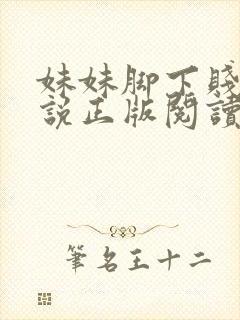 妹妹脚下賤
説正版閱讀
筆名王十二